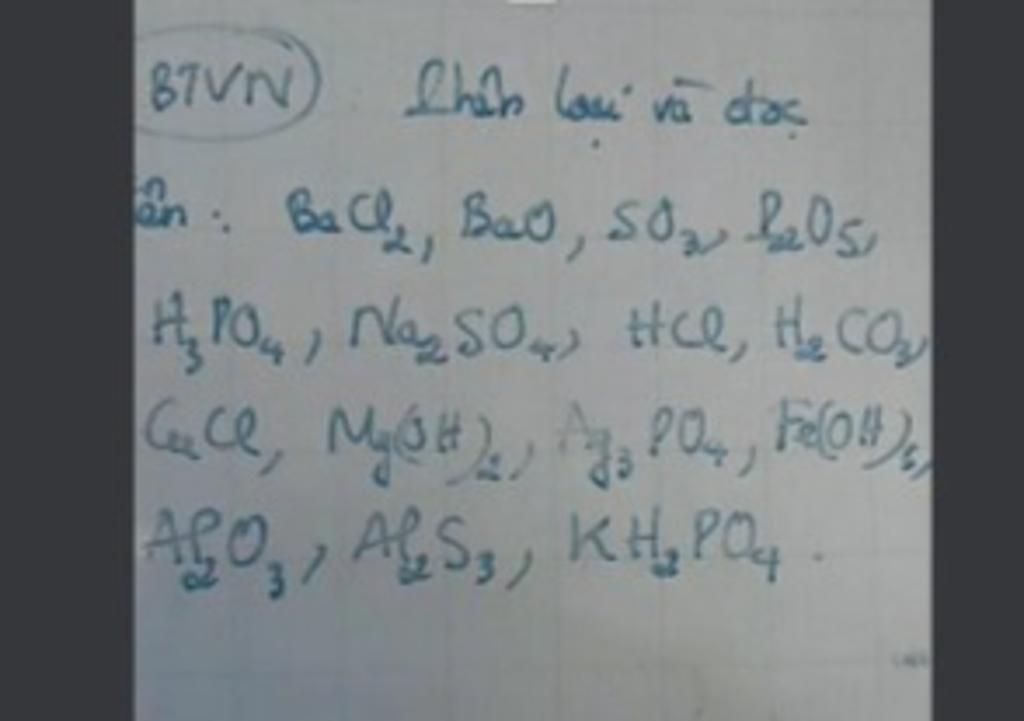 BTVN Phân loại và đọc
ân : BaCl₂, BaO, SO₃, P₂O₅,
H₃PO₄, Na₂SO₄, HCl, H₂CO₃
CuCl, Mg(OH)₂, Ag₃PO₄,
Al₂O₃, Al₂S₃, KH₂PO₄.